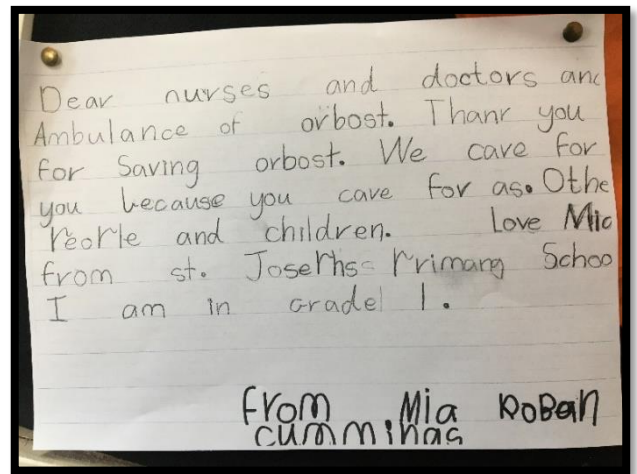 Dear nurses and doctors and
Ambulance of orbost. Thank you
for Saving orbost. We care for
you because you care for as. Othe
People and children. Love Mia
from st. Josephs Primary Schoo
I am in Grade 1.
from Mia RoBan
cummings